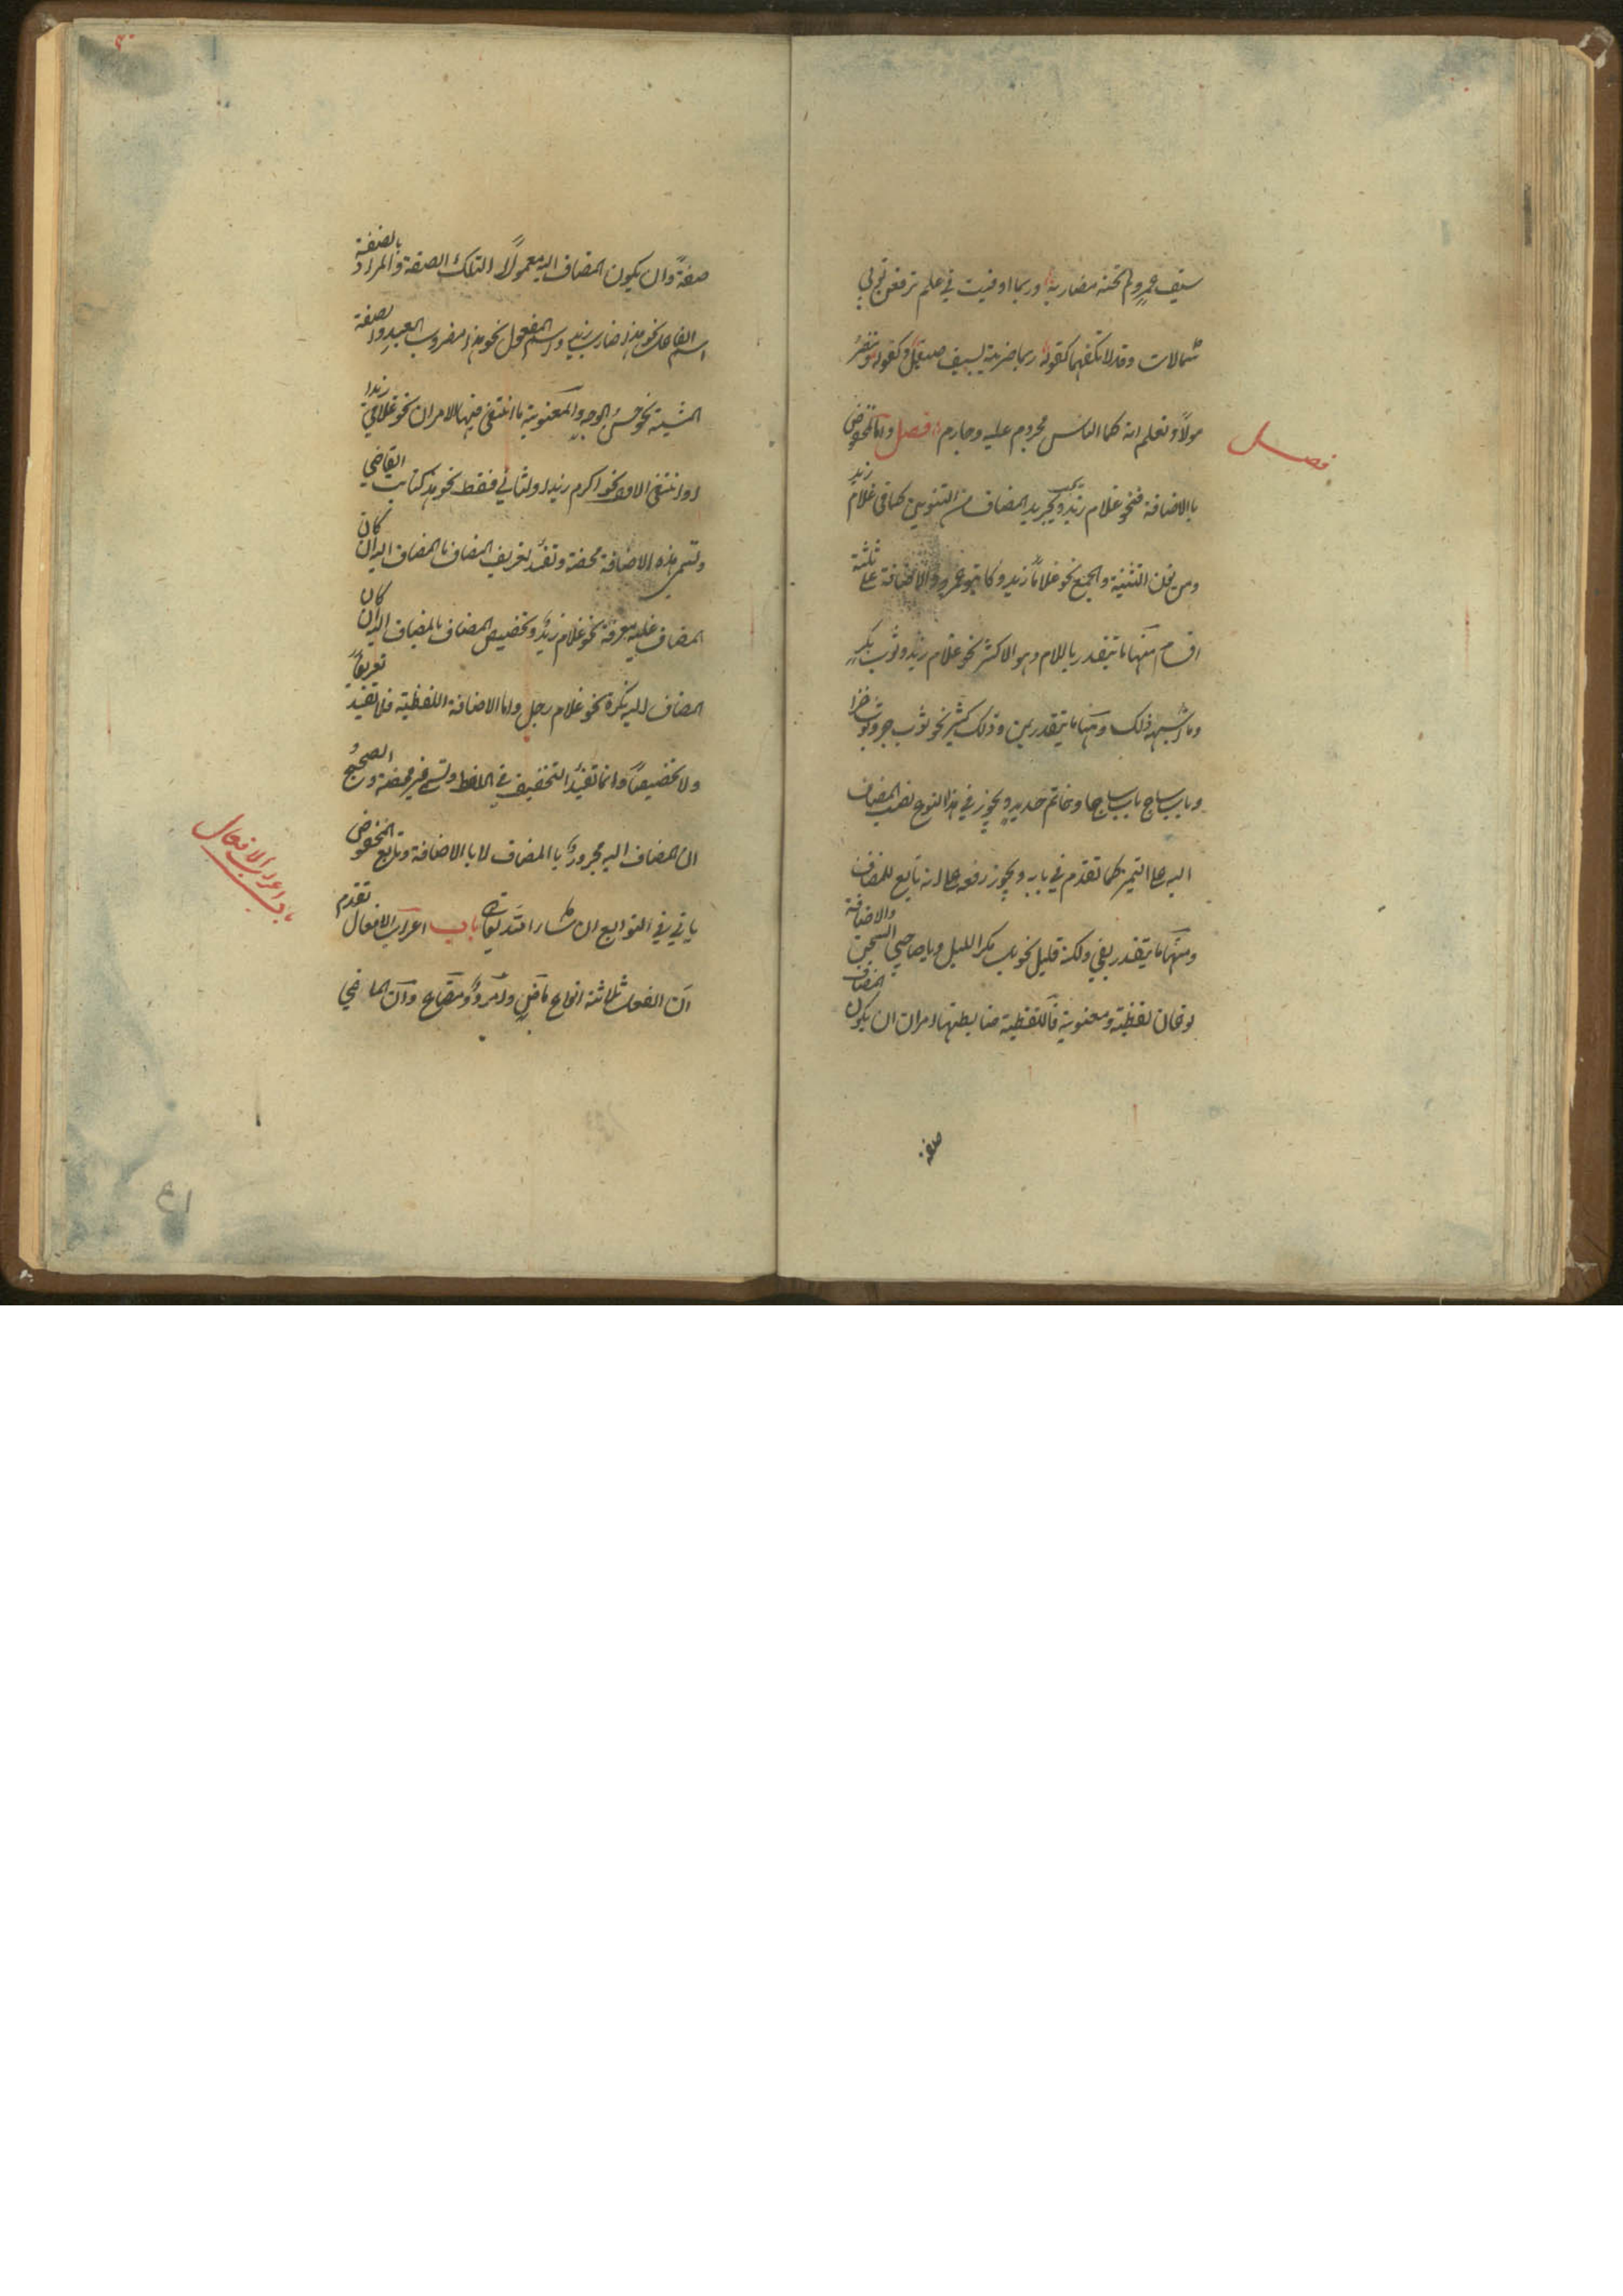 سيف عمرو لم تخنه مضاربه وربما اوفيت في علم ترفعن ثوبي
شمالات وقد لا تكفهما كقوله ربما ضربة بسيف صيقل وكقوله وننصر
مولانا ونعلم انه كما الناس مجروم عليه وجارم فصل واما المخفوض
فصل
بالاضافة فنحو غلام زيد ويجب تجريد المضاف من التنوين كما في غلام زيد
ومن نون التثنية والجمع نحو غلاما زيد وكاتبو عمرو والاضافة على ثلثة
اقسام منها ما يتقدر باللام وهو الاكثر نحو غلام زيد وثوب بكر
وما اشبه ذلك ومنها ما يتقدر بمن وذلك كثير نحو ثوب خز وثوب خزا
وباب ساج باب ساجا وخاتم حديد ويجوز في هذا النوع نصب المضاف
اليه على التمييز كما تقدم في بابه ويجوز رفعه على انه تابع للمضاف
ومنها ما يتقدر بفي ولكنه قليل نحو بل مكر الليل ويا صاحبي السجن والاضافة
نوعان لفظية ومعنوية فاللفظية ضابطتها امران ان يكون المضاف
صفة
صفة وان يكون المضاف اليه معمولا لتلك الصفة والمراد بالصفة
اسم الفاعل نحو هذا ضارب زيد واسم المفعول نحو هذا مضروب العبد والصفة
المشبهة نحو حسن الوجه والمعنوية ما انتفى فيها الامران نحو غلام زيد
او انتفى الاول نحو اكرم زيد او الثاني فقط نحو هذا كاتب القاضي
وتسمى هذه الاضافة محضة وتفيد تعريف المضاف بالمضاف اليه ان كان
المضاف عليه معرفة نحو غلام زيد وتخصيص المضاف بالمضاف اليه ان كان
المضاف اليه نكرة نحو غلام رجل واما الاضافة اللفظية فلا تفيد تعريفا
ولا تخصيصا وانما تفيد التخفيف في اللفظ وتسمى غير محضة والصحيح
ان المضاف اليه مجرور بالمضاف لا بالاضافة وتابع المخفوض
يأتي في التوابع ان شاء الله تعالى باب اعراب الافعال تقدم
باب اعراب الافعال
ان الفعل ثلاثة انواع ماض وامر ومضارع وان الماضي